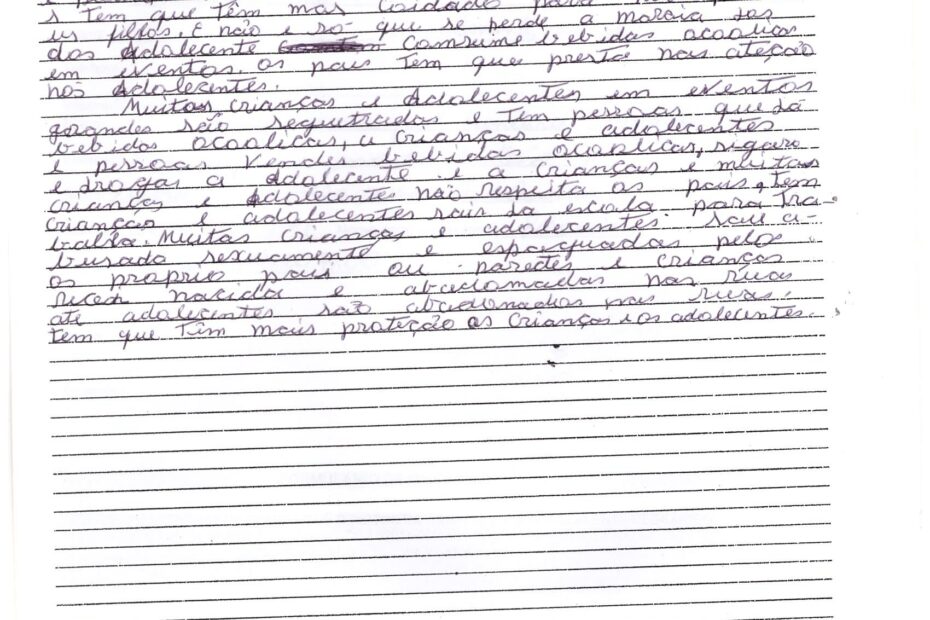 s tem que têm mas Coidado para
us filhos, E não e só que se perde a
dos Adolecente Consume bebidas acoolicas
em eventos. os pais tem que presta nas ateção
nos Adolecentes.
Muitas crianças e Adolecentes em eventos
grandes são sequetradas e tem pessoas que dá
bebidas acoolicas, a crianças e adolecentes
e pessoas vendes bebidas acoolicas, sigaro
e drogas a adolecente e a crianças e muitas
crianças e Adolecentes não respeita os pais, tem
crianção e adolecentes sair da escola para tra-
balha. Muitas crianças e adolecentes são a-
busado sexuamente e espacuadas pelos
os proprio pais ou paredes e crianças
recen nacida e abadomadas nas ruas
até adolecentes são abadonados nas ruas.
tem que Têm mais proteção as crianças e os adolecentes.